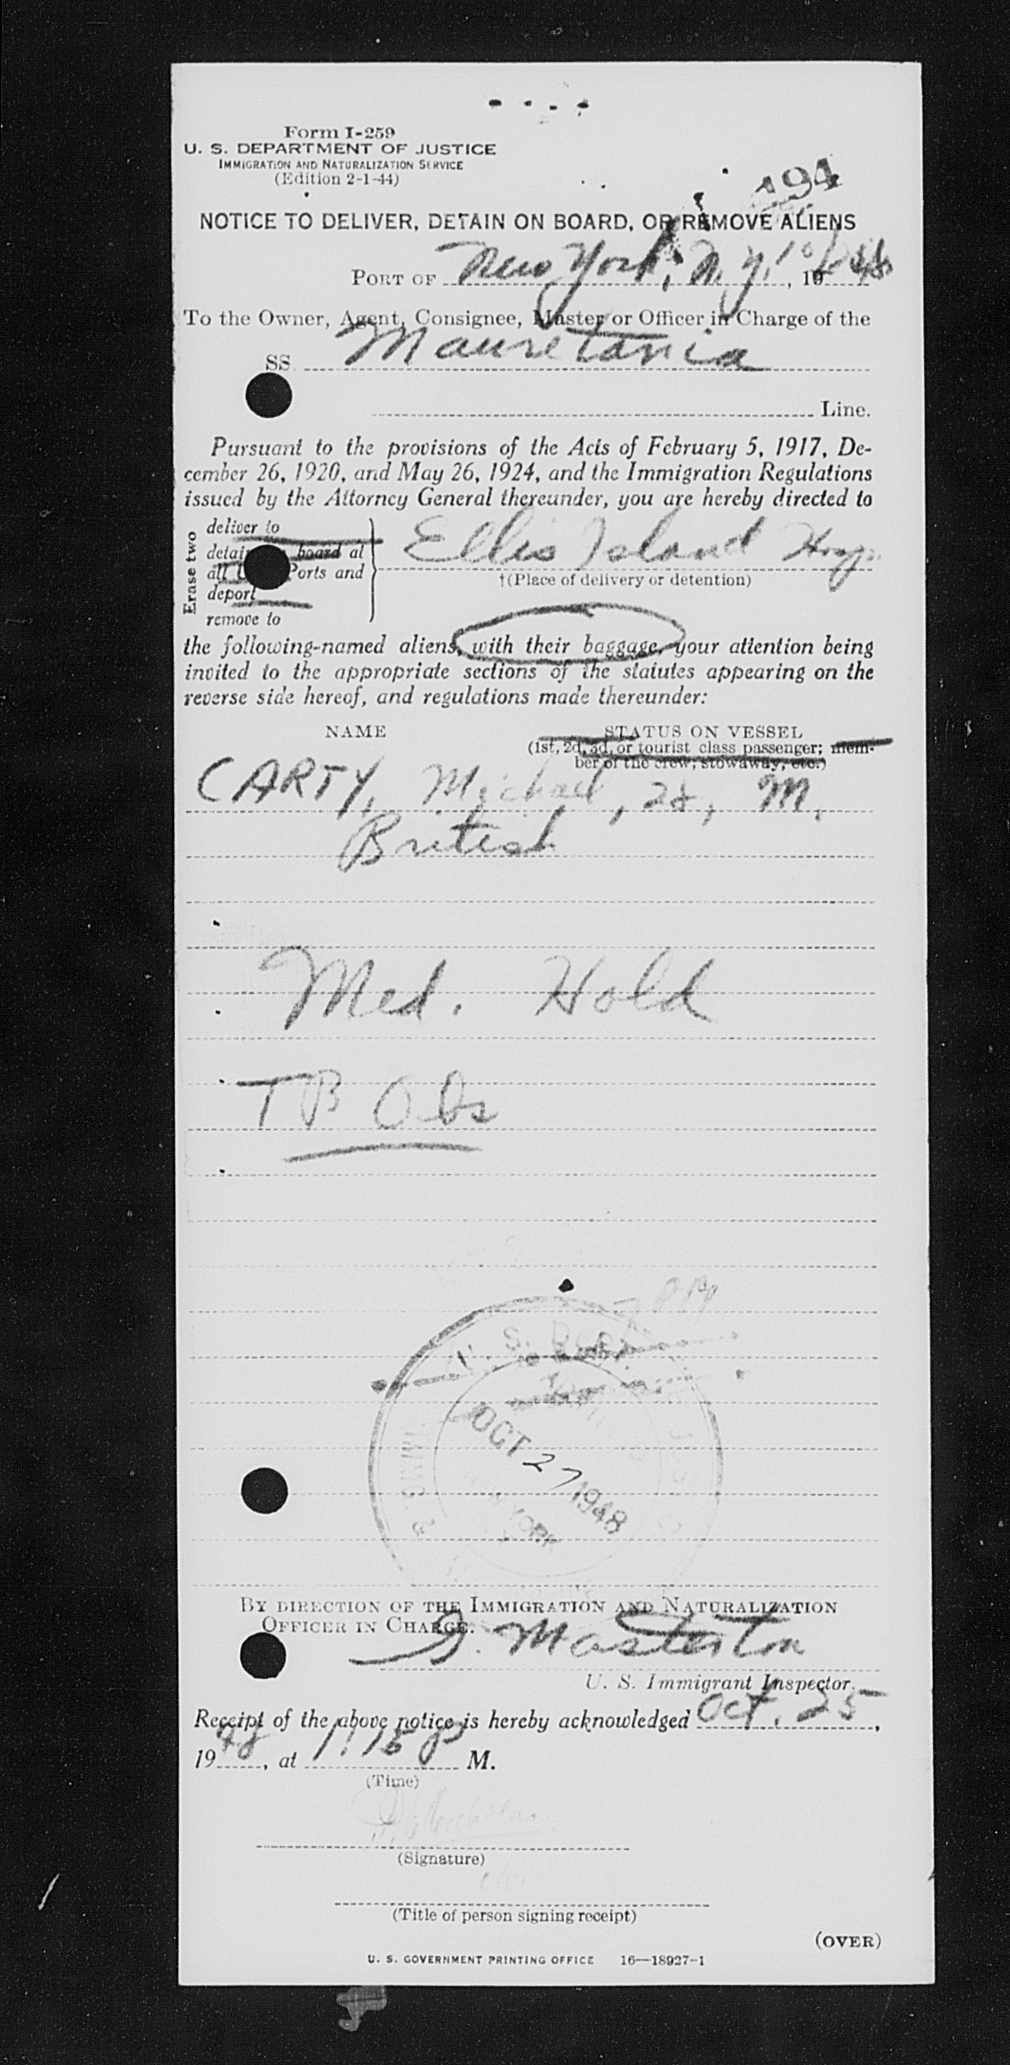 Form I-259
U. S. DEPARTMENT OF JUSTICE
IMMIGRATION AND NATURALIZATION SERVICE
(Edition 2-1-44)
194
NOTICE TO DELIVER, DETAIN ON BOARD, OR REMOVE ALIENS
PORT OF New York, N. Y., 19 48
To the Owner, Agent, Consignee, Master or Officer in Charge of the
SS Mauretania
Line.
Pursuant to the provisions of the Acts of February 5, 1917, De-
cember 26, 1920, and May 26, 1924, and the Immigration Regulations
issued by the Attorney General thereunder, you are hereby directed to
Erase two
deliver to
detain board at
all Ports and
deport
remove to
Ellis Island Hosp.
†(Place of delivery or detention)
the following-named aliens, with their baggage, your attention being
invited to the appropriate sections of the statutes appearing on the
reverse side hereof, and regulations made thereunder:
NAME STATUS ON VESSEL
(1st, 2d, 3d, or tourist class passenger; mem-
ber of the crew; stowaway, etc.)
CARTY, Michael, 28, M,
British
Med. Hold
TB Obs
U. S. DEPT.
OCT 27 1948
YORK
IMMIG. &
BY DIRECTION OF THE IMMIGRATION AND NATURALIZATION
OFFICER IN CHARGE.
Masterton
U. S. Immigrant Inspector.
Receipt of the above notice is hereby acknowledged Oct. 25,
19 48, at 1:15 P M.
(Time)
(Signature)
(Title of person signing receipt)
(OVER)
U. S. GOVERNMENT PRINTING OFFICE 16—18927-1